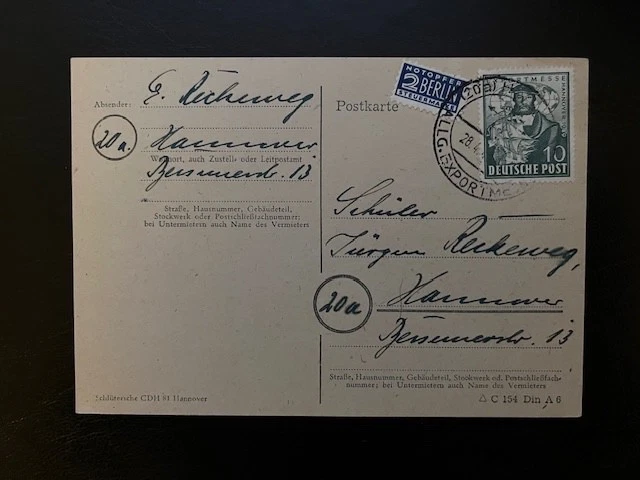 Absender:
E. Reckeweg
20a.
Hannover
Wohnort, auch Zustell- oder Leitpostamt
Bessemerstr. 13
Straße, Hausnummer, Gebäudeteil,
Stockwerk oder Postschließfachnummer;
bei Untermietern auch Name des Vermieters
Schlütersche CDH 81 Hannover
Postkarte
NOTOPFER
2 BERLIN
STEUERMARKE
(20a)
28.4.
ALLG. EXPORTM
MESSE
HANNOVER
10
DEUTSCHE POST
Schüler
Jürgen Reckeweg,
20a
Hannover
Bessemerstr. 13
Straße, Hausnummer, Gebäudeteil, Stockwerk od. Postschließfach-
nummer; bei Untermietern auch Name des Vermieters
C 154 Din A 6